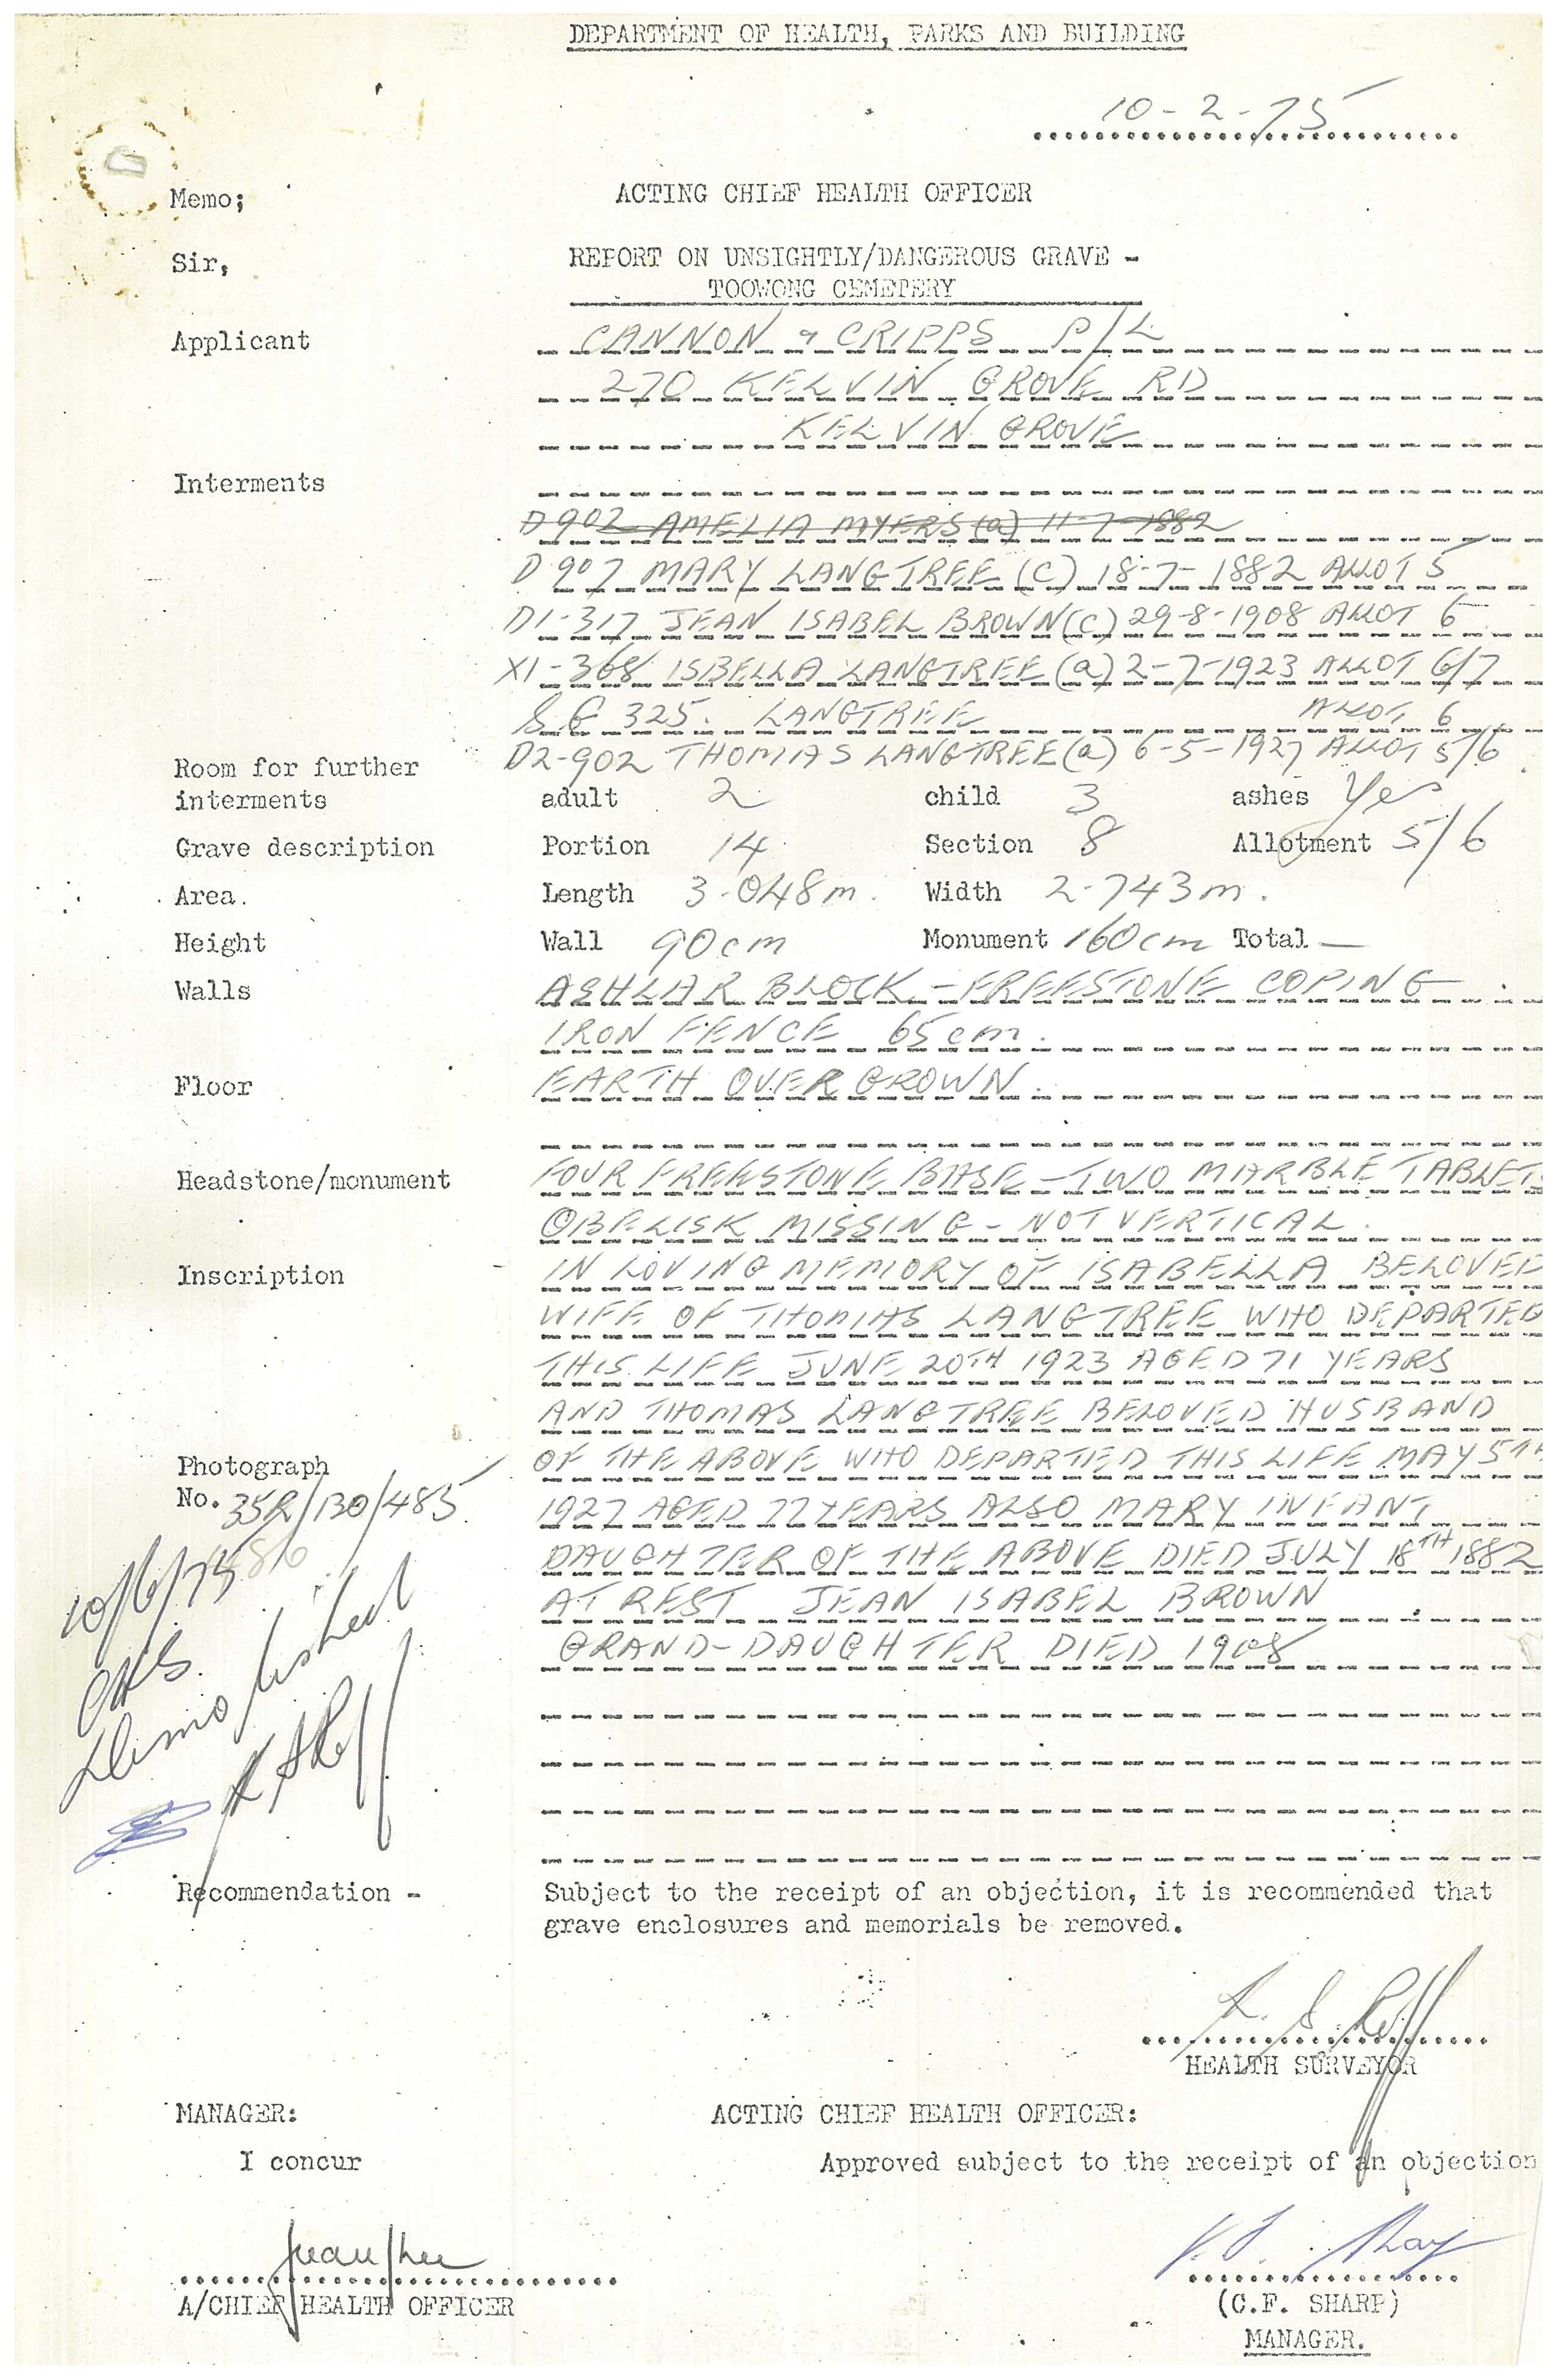 DEPARTMENT OF HEALTH, PARKS AND BUILDING
10-2-75
Memo; ACTING CHIEF HEALTH OFFICER
Sir, REPORT ON UNSIGHTLY/DANGEROUS GRAVE -
TOOWONG CEMETERY
Applicant CANNON & CRIPPS P/L
270 KELVIN GROVE RD
KELVIN GROVE
Interments
D902 AMELIA MYERS (a) 11-7-1882
D907 MARY LANGTREE (C) 18-7-1882 ALLOT 5
D1-317 JEAN ISABEL BROWN (C) 29-8-1908 ALLOT 6
X1-368 ISBELLA LANGTREE (a) 2-7-1923 ALLOT 6/7
S.G 325. LANGTREE ALLOT 6
D2-902 THOMAS LANGTREE (a) 6-5-1927 ALLOT 5/6
Room for further
interments adult 2 child 3 ashes Yes
Grave description Portion 14 Section 8 Allotment 5/6
Area. Length 3.048m. Width 2.743m.
Height Wall 90cm Monument 160cm Total —
Walls ASHLAR BLOCK - FREESTONE COPING
IRON FENCE 65cm.
Floor EARTH OVERGROWN.
Headstone/monument FOUR FREESTONE BASE - TWO MARBLE TABLETS
OBELISK MISSING - NOT VERTICAL.
Inscription IN LOVING MEMORY OF ISABELLA BELOVED
WIFE OF THOMAS LANGTREE WHO DEPARTED
THIS LIFE JUNE 20TH 1923 AGED 71 YEARS
AND THOMAS LANGTREE BELOVED HUSBAND
OF THE ABOVE WHO DEPARTED THIS LIFE MAY 5TH
Photograph
No. 35R/130/485
486
1927 AGED 77 YEARS ALSO MARY INFANT
DAUGHTER OF THE ABOVE DIED JULY 18TH 1882
AT REST JEAN ISABEL BROWN
GRAND-DAUGHTER DIED 1908
10/6/75
Demolished
Recommendation - Subject to the receipt of an objection, it is recommended that
grave enclosures and memorials be removed.
HEALTH SURVEYOR
MANAGER: ACTING CHIEF HEALTH OFFICER:
I concur Approved subject to the receipt of an objection
A/CHIEF HEALTH OFFICER
(C.F. SHARP)
MANAGER.